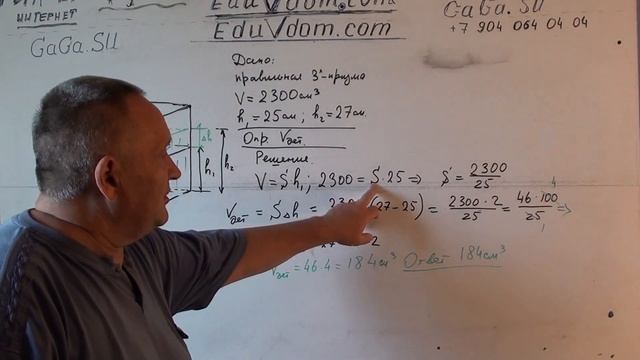 ИНТЕРНЕТ
GaGa.SU
EduVdom.com
EduVdom.com
GaGa.SU
+7 904 064 04 04
Дано:
правильная 3-призма
V = 2300 см³
h₁ = 25 см; h₂ = 27 см.
Опр. Vдет.
Решение
V = S h₁; 2300 = S · 25 ⇒ S = 2300/25
Vдет = S Δh = (27-25) = 2300·2/25 = 46·100/25 ⇒
4
1
2
Vдет = 46·4 = 184 см³ Ответ 184 см³
Δh
h₁
h₂